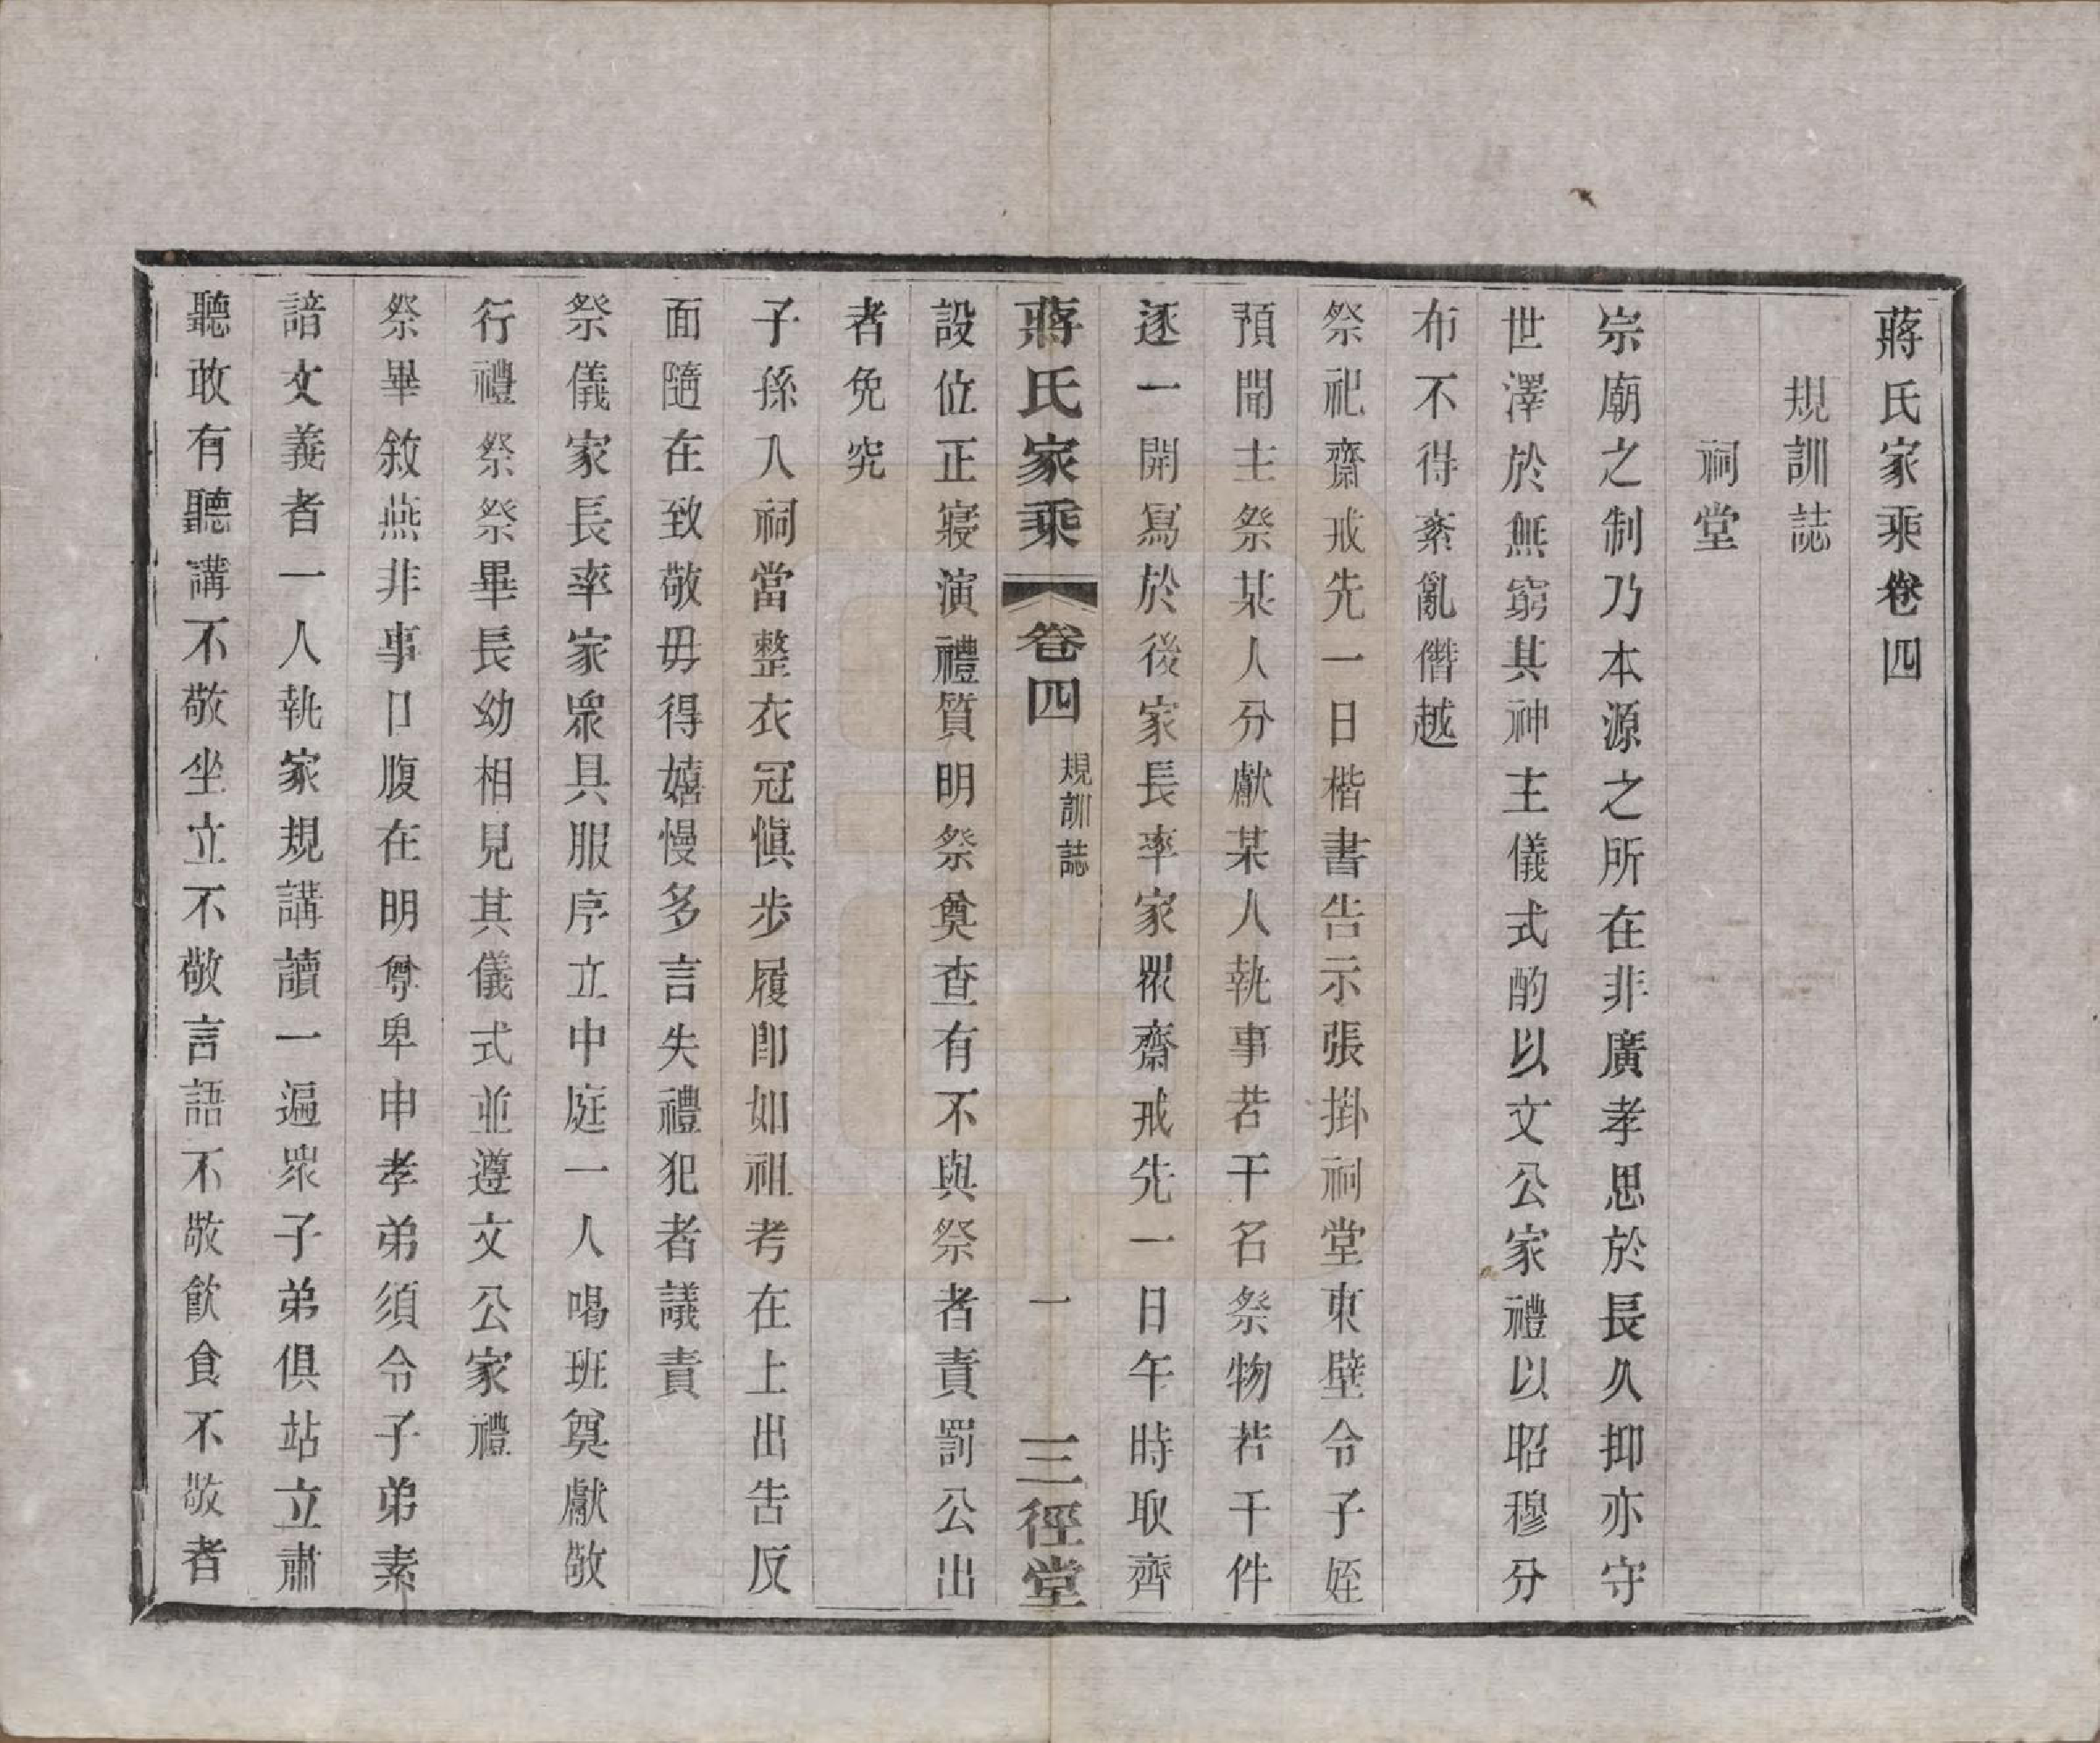 蔣氏家乘卷四
規訓誌
祠堂
宗廟之制乃本源之所在非廣孝思於長久抑亦守
世澤於無窮其神主儀式酌以文公家禮以昭穆分
布不得紊亂僭越
祭祀齋戒先一日楷書告示張掛祠堂東壁令子姪
預聞主祭某人分獻某人執事若干名祭物若干件
逐一開寫於後家長率家眾齋戒先一日午時取齊
蔣氏家乘 卷四 規訓誌 一 三徑堂
設位正寢演禮質明祭奠查有不與祭者責罰公出
者免究
子孫入祠當整衣冠愼步履卽如祖考在上出告反
面隨在致敬毋得嬉慢多言失禮犯者議責
祭儀家長率家眾具服序立中庭一人唱班奠獻敬
行禮祭祭畢長幼相見其儀式並遵文公家禮
祭畢敘燕非事口腹在明尊卑申孝弟須令子弟素
諳文義者一人執家規講讀一遍眾子弟俱站立肅
聽敢有聽講不敬坐立不敬言語不敬飮食不敬者